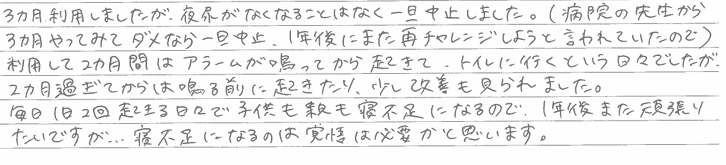 3ヵ月利用しましたが、夜尿がなくなることはなく一旦中止しました。(病院の先生から
3ヵ月やってみてダメなら一旦中止、1年後にまた再チャレンジしようと言われていたので)
利用して2ヵ月間はアラームが鳴ってから起きて、トイレに行くという日々でしたが
2ヵ月過ぎてからは鳴る前に起きたり、少し改善も見られました。
毎日1日2回起きる日々で子供も親も寝不足になるので、1年後また頑張り
たいですが…寝不足になるのは覚悟は必要かと思います。